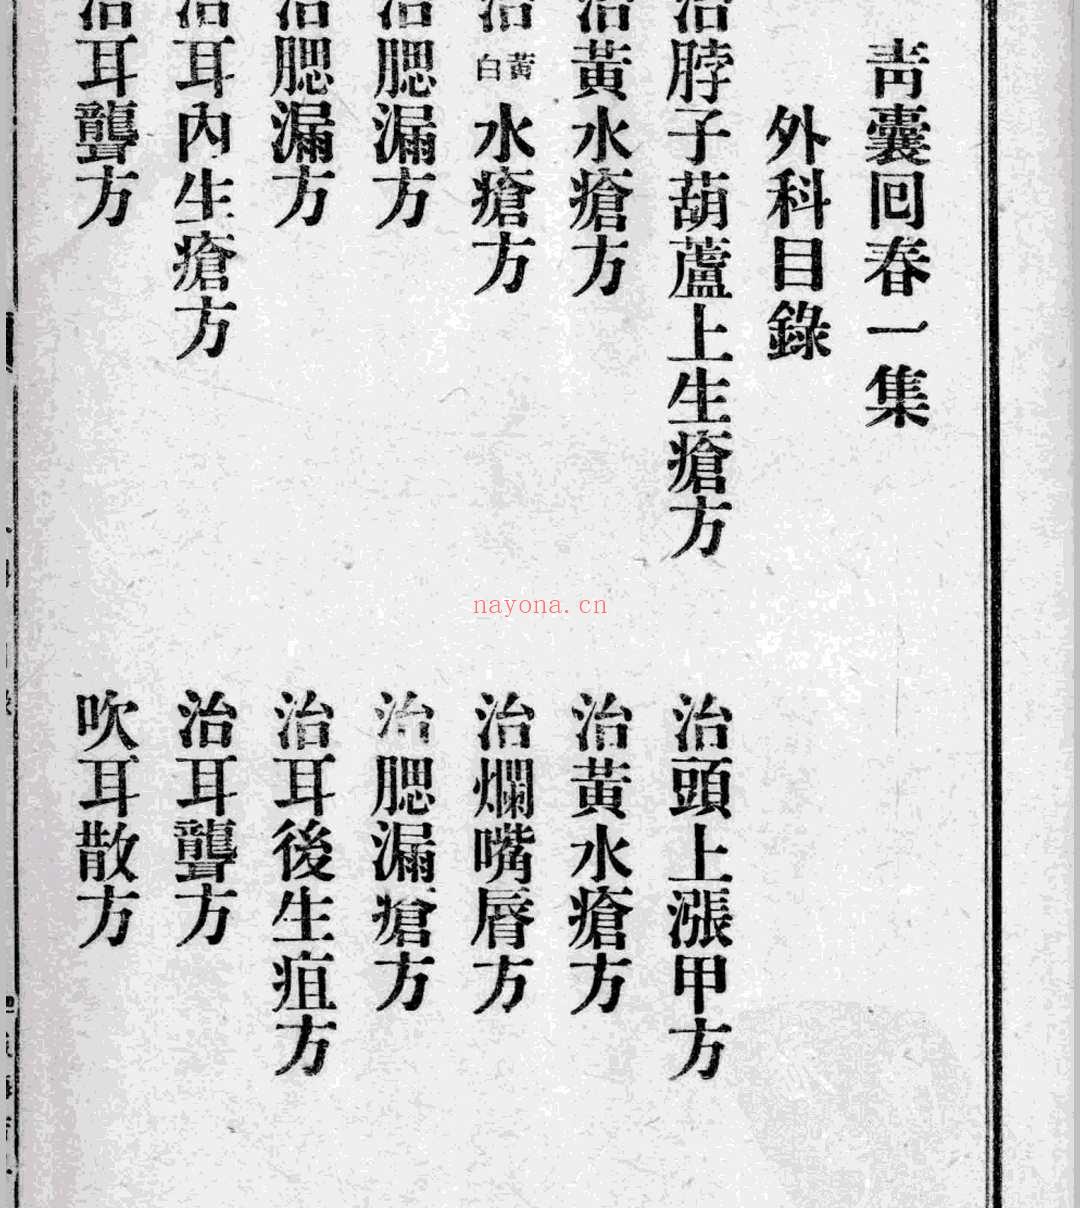 青囊回春一集
外科目錄
治脖子葫蘆上生瘡方
治頭上漲甲方
治黃水瘡方
治黃水瘡方
治黃白水瘡方
治爛嘴唇方
治腮漏方
治腮漏瘡方
治腮漏方
治耳後生疽方
治耳內生瘡方
治耳聾方
治耳聾方
吹耳散方
nayona.cn